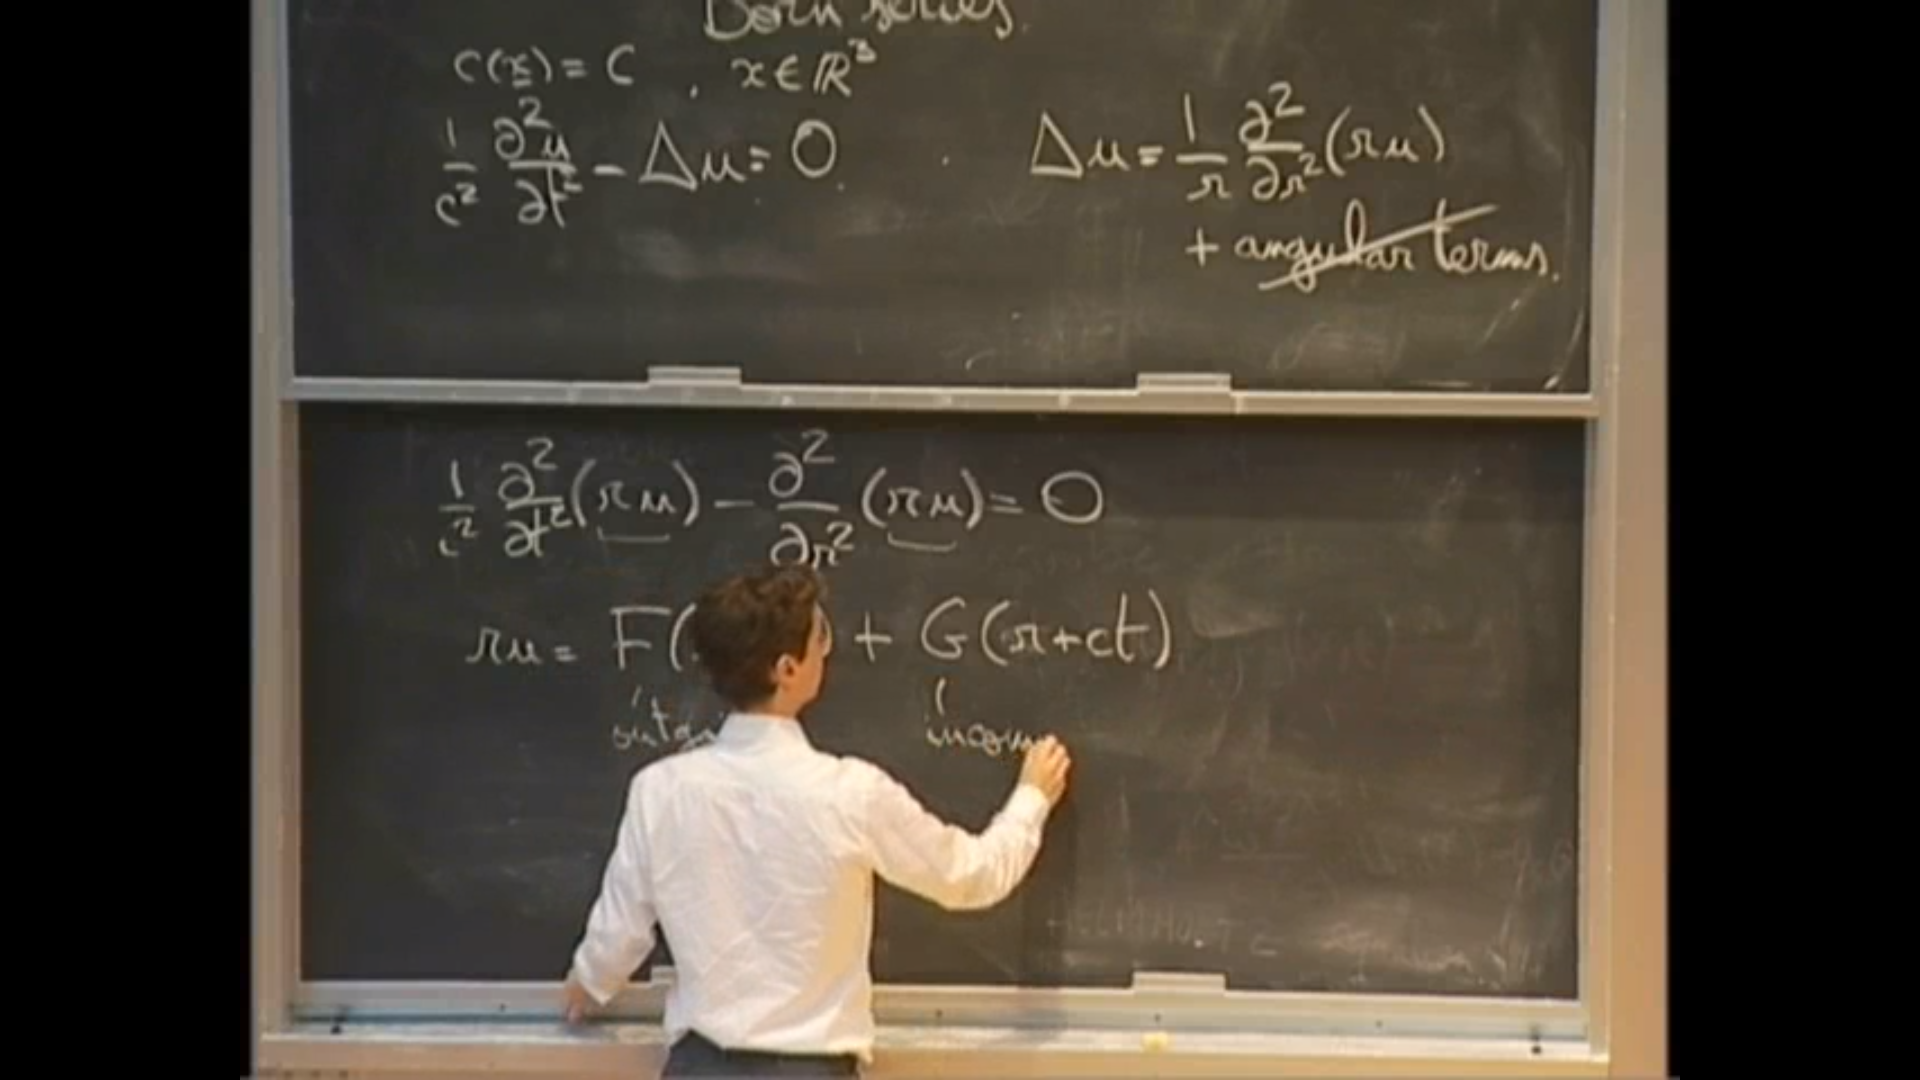 Born series.
c(x) = c , x ∈ ℝ³
1/c² ∂²u/∂t² - Δu = 0.
Δu = 1/r ∂²/∂r² (ru)
+ angular terms.
1/c² ∂²/∂t² (ru) - ∂²/∂r² (ru) = 0
ru = F( ) + G(r+ct)